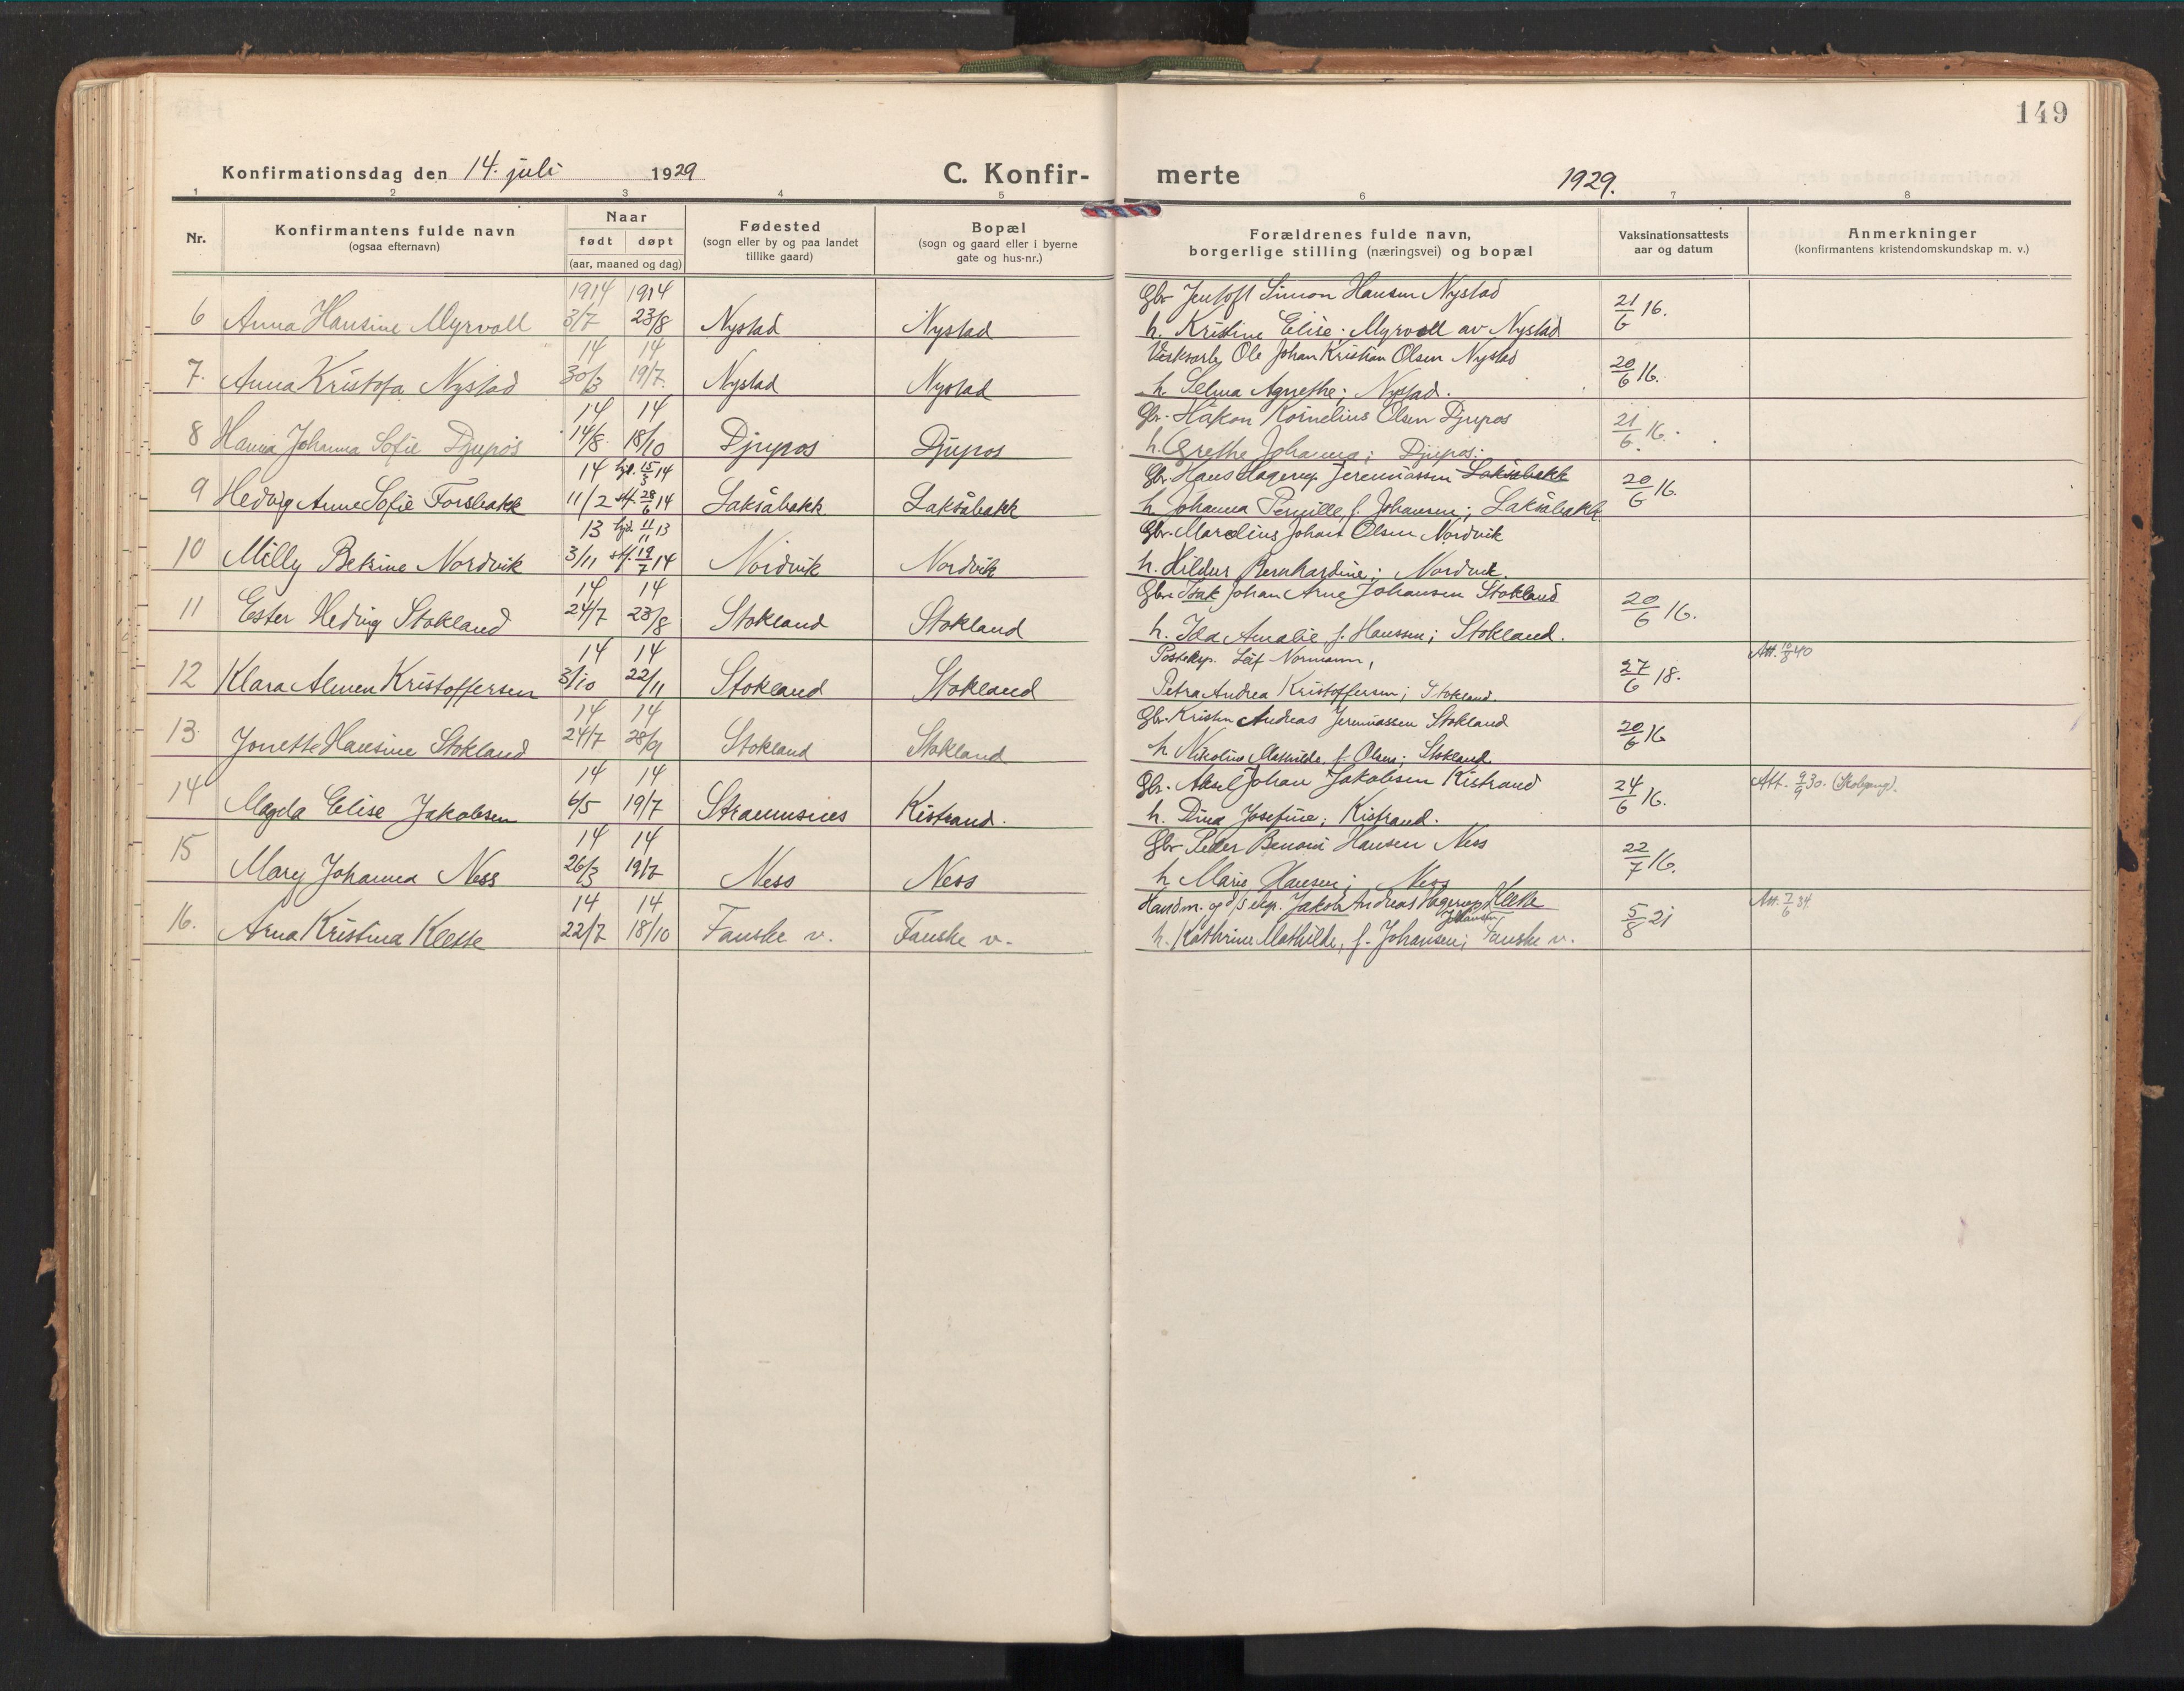 149
Konfirmationsdag den 14. juli 1929 C. Konfir- merte 1929.
1 2 3 4 5 6 7 8
Nr. Konfirmantens fulde navn (ogsaa efternavn)
Naar født døpt (aar, maaned og dag)
Fødested (sogn eller by og paa landet tillike gaard)
Bopæl (sogn og gaard eller i byerne gate og hus-nr.)
Forældrenes fulde navn, borgerlige stilling (næringsvei) og bopæl
Vaksinationsattests aar og datum
Anmerkninger (konfirmantens kristendomskundskap m. v.)
1914 1914 Gbr. Jentoft Simon Hansen Nystad
6 Anna Hansine Myrvoll 3/7 23/8 Nystad Nystad h. Kristine Elise; Myrvoll av Nystad 21/6 16.
14 14 Ole Johan Kristian Olsen Nystad
7. Anna Kristofa Nystad 30/3 19/7. Nystad Nystad h. Selma Agnethe; Nystad. 20/6 16.
14 14 Gbr. Håkon Kornelius Olsen Djupos
8 Hanna Johanna Sofie Djupos 14/8 18/10 Djupos Djupos h. Grethe Johanna; Djupos. 21/6 16.
14 hjd. 15/3 14 Gbr. Hans Hagerup Jeremiassen Laksåbakk
9 Hedvig Anne Sofie Forsbakk 11/2 stf. 28/6 14 Laksåbakk Laksåbakk h. Johanna Pernille f. Johansen; Laksåbakk. 20/6 16.
13 hjd. 11/11 13 Gbr. Marelius Johart Olsen Nordvik
10 Milly Betrine Nordvik 3/11 stf. 19/7 14 Nordvik Nordvik h. Hildur Bernhardine; Nordvik.
14 14 Gbr. Isak Johan Arne Johansen Stokland
11 Ester Hedvig Stokland 24/7 23/8 Stokland Stokland h. Ida Amalie f. Hanssen; Stokland. 20/6 16.
14 14 Posteksp. Leif Normann, Att. 10/8 40
12 Klara Almen Kristoffersen 3/10 22/11 Stokland Stokland Petra Andrea Kristoffersen; Stokland. 27/6 18.
14 14 Gbr. Kristen Andreas Jeremiassen Stokland
13 Jonette Hansine Stokland 24/7 28/9 Stokland Stokland h. Nikoline Mathilde f. Olsen; Stokland 20/6 16
14 14 Gbr. Aksel Johan Jakobsen Kistrand
14 Magda Elise Jakobsen 6/5 19/7 Straumsnes Kistrand. h. Dina Josefine; Kistrand. 24/6 16. Att. 9/9 30. (Skolgang).
14 14 Gbr. Peder Benoni Hansen Ness
15 Mary Johanna Ness 26/3 19/7 Ness Ness h. Marie Hansen; Ness 22/7 16.
14 14 Handm. og d/s eksp. Jakob Andreas Hagerup Klette Att. 7/6 34.
16. Arna Kristina Klette 22/7 18/10 Fauske v. Fauske v. h. Kathrine Mathilde, f. Johansen; Fauske v. 5/8 21